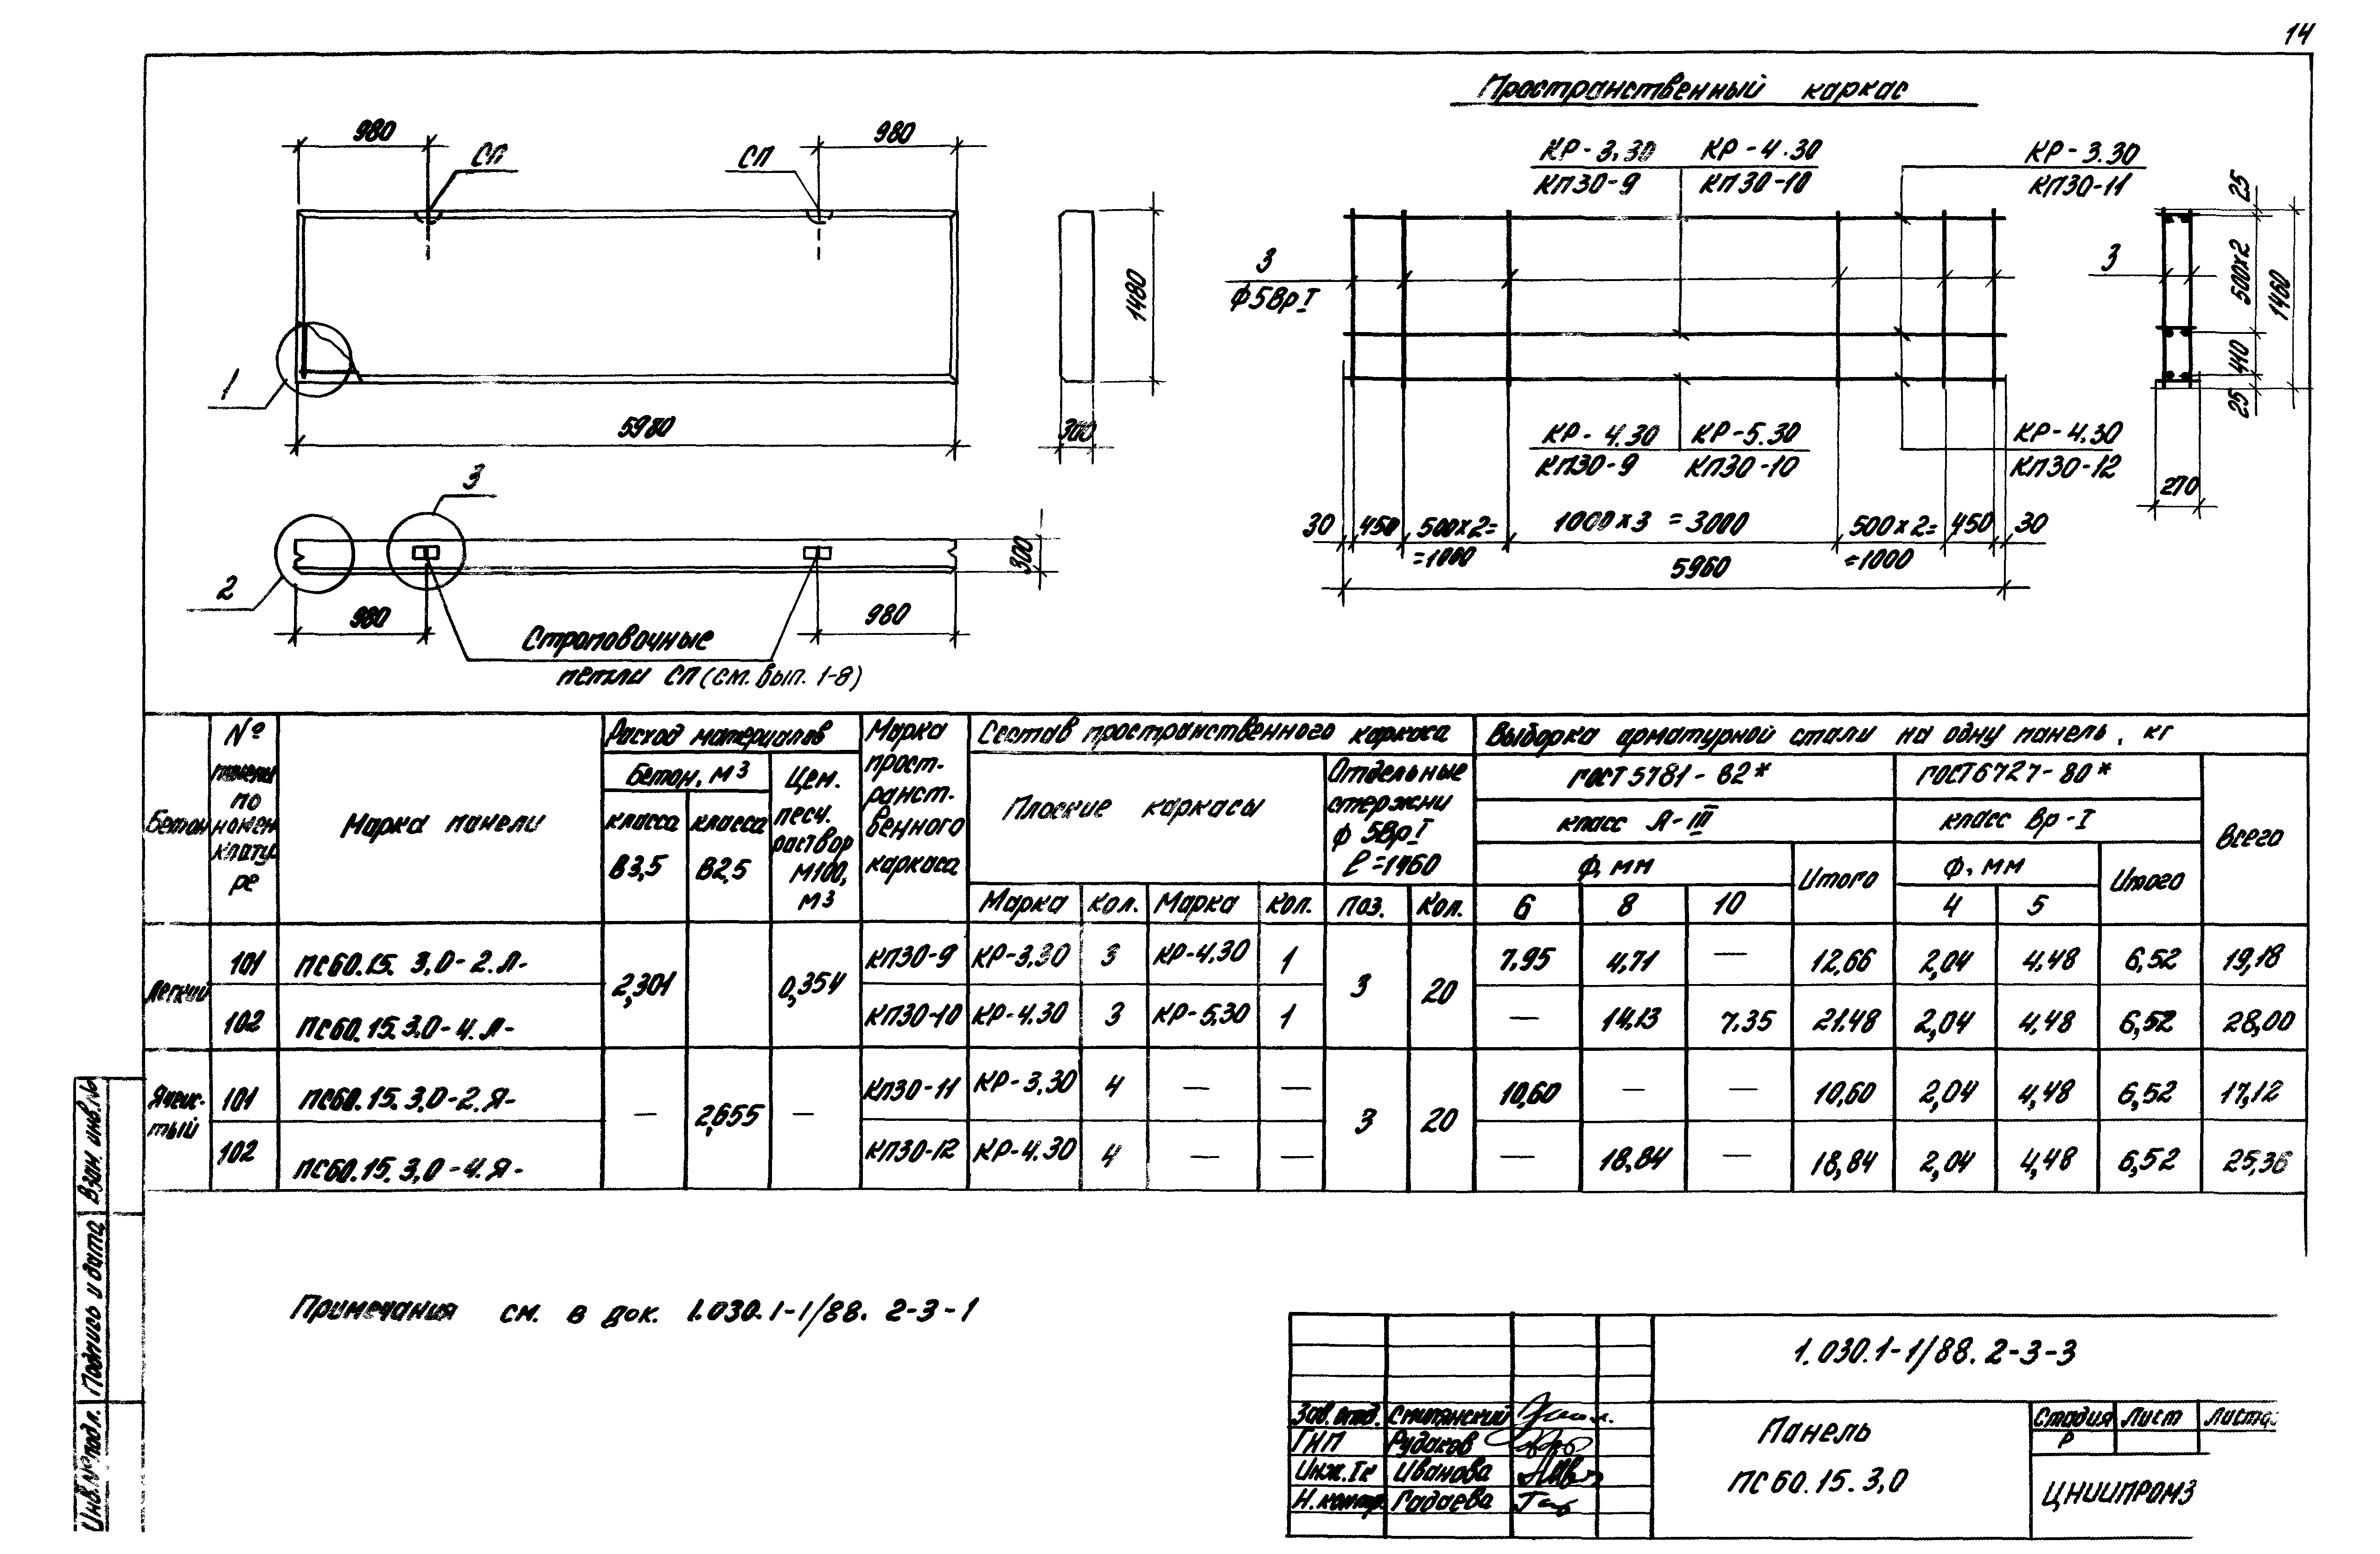 14
Пространственный каркас
980
СП
СП
980
1480
300
1
5980
3
2
300
980
980
Строповочные
петли СП (см. вып. 1-8)
КР-3.30 КР-4.30
КП30-9 КП30-10
КР-3.30
КП30-11
3
ф5ВрI
3
25
500х2
440
25
1460
270
КР-4.30 КР-5.30
КП30-9 КП30-10
КР-4.30
КП30-12
30 450 500х2=
=1000
1000х3 =3000
500х2=
=1000
450 30
5960
Бетон
№ панели по номенклатуре
Марка панели
Расход материалов
Бетон, м3
класса В3,5
класса В2,5
Цем. песч. раствор М100, м3
Марка прост-ранст-венного каркаса
Состав пространственного каркаса
Плоские каркасы
Отдельные стержни ф 5ВрI ℓ=1460
Марка кол. Марка кол. поз. кол.
Выборка арматурной стали на одну панель, кг
ГОСТ 5781-82*
ГОСТ 6727-80*
класс А-III
класс Вр-I
Всего
ф, мм
Итого
ф, мм
Итого
6 8 10 4 5
Легкий
101 ПС60.15.3,0-2.Л- 2,301 0,354 КП30-9 КР-3.30 3 КР-4.30 1 3 20 7.95 4,71 — 12,66 2,04 4,48 6,52 19,18
102 ПС60.15.3.0-4.Л- КП30-10 КР-4.30 3 КР-5.30 1 — 14,13 7.35 21.48 2,04 4,48 6,52 28,00
Ячеис-тый
101 ПС60.15.3,0-2.Я- — 2,655 — КП30-11 КР-3,30 4 — — 3 20 10,60 — — 10,60 2,04 4,48 6,52 17,12
102 ПС60.15.3,0-4.Я- КП30-12 КР-4.30 4 — — — 18,84 — 18,84 2,04 4,48 6,52 25,36
Примечания см. в док. 1.030.1-1/88. 2-3-1
Инв.№подл. Подпись и дата Взам. инв.№
1.030.1-1/88. 2-3-3
Зав.отд.
ГИП Рудаков
Инж.Iк Иванова
Н.контр. Гадаева
Панель
ПС60.15.3,0
Стадия Лист
Р
ЦНИИПРОМЗ